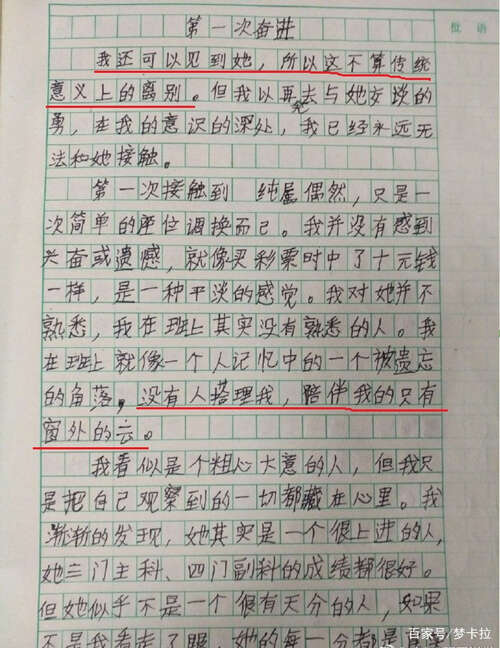 第一次奋进
批语
我还可以见到她，所以这不算传统
意义上的离别。但我以再去与她交谈的
勇，在我的意识的深处，我已经永远无
法和她接触。
第一次接触到 纯属偶然，只是一
次简单的座位调换而已。我并没有感到
兴奋或遗憾，就像买彩票时中了十元钱
一样，是一种平淡的感觉。我对她并不
熟悉，我在班上其实没有熟悉的人。我
在班上就像一个人记忆中的一个被遗忘
的角落，没有人搭理我，陪伴我的只有
窗外的云。
我看似是个粗心大意的人，但我只
是把自己观察到的一切都藏在心里。我
渐渐的发现，她其实是一个很上进的人，
她三门主科、四门副科的成绩都很好。
但她似乎不是一个很有天分的人，如果
不是我看走了眼，她的每一分都是
百家号/梦卡拉